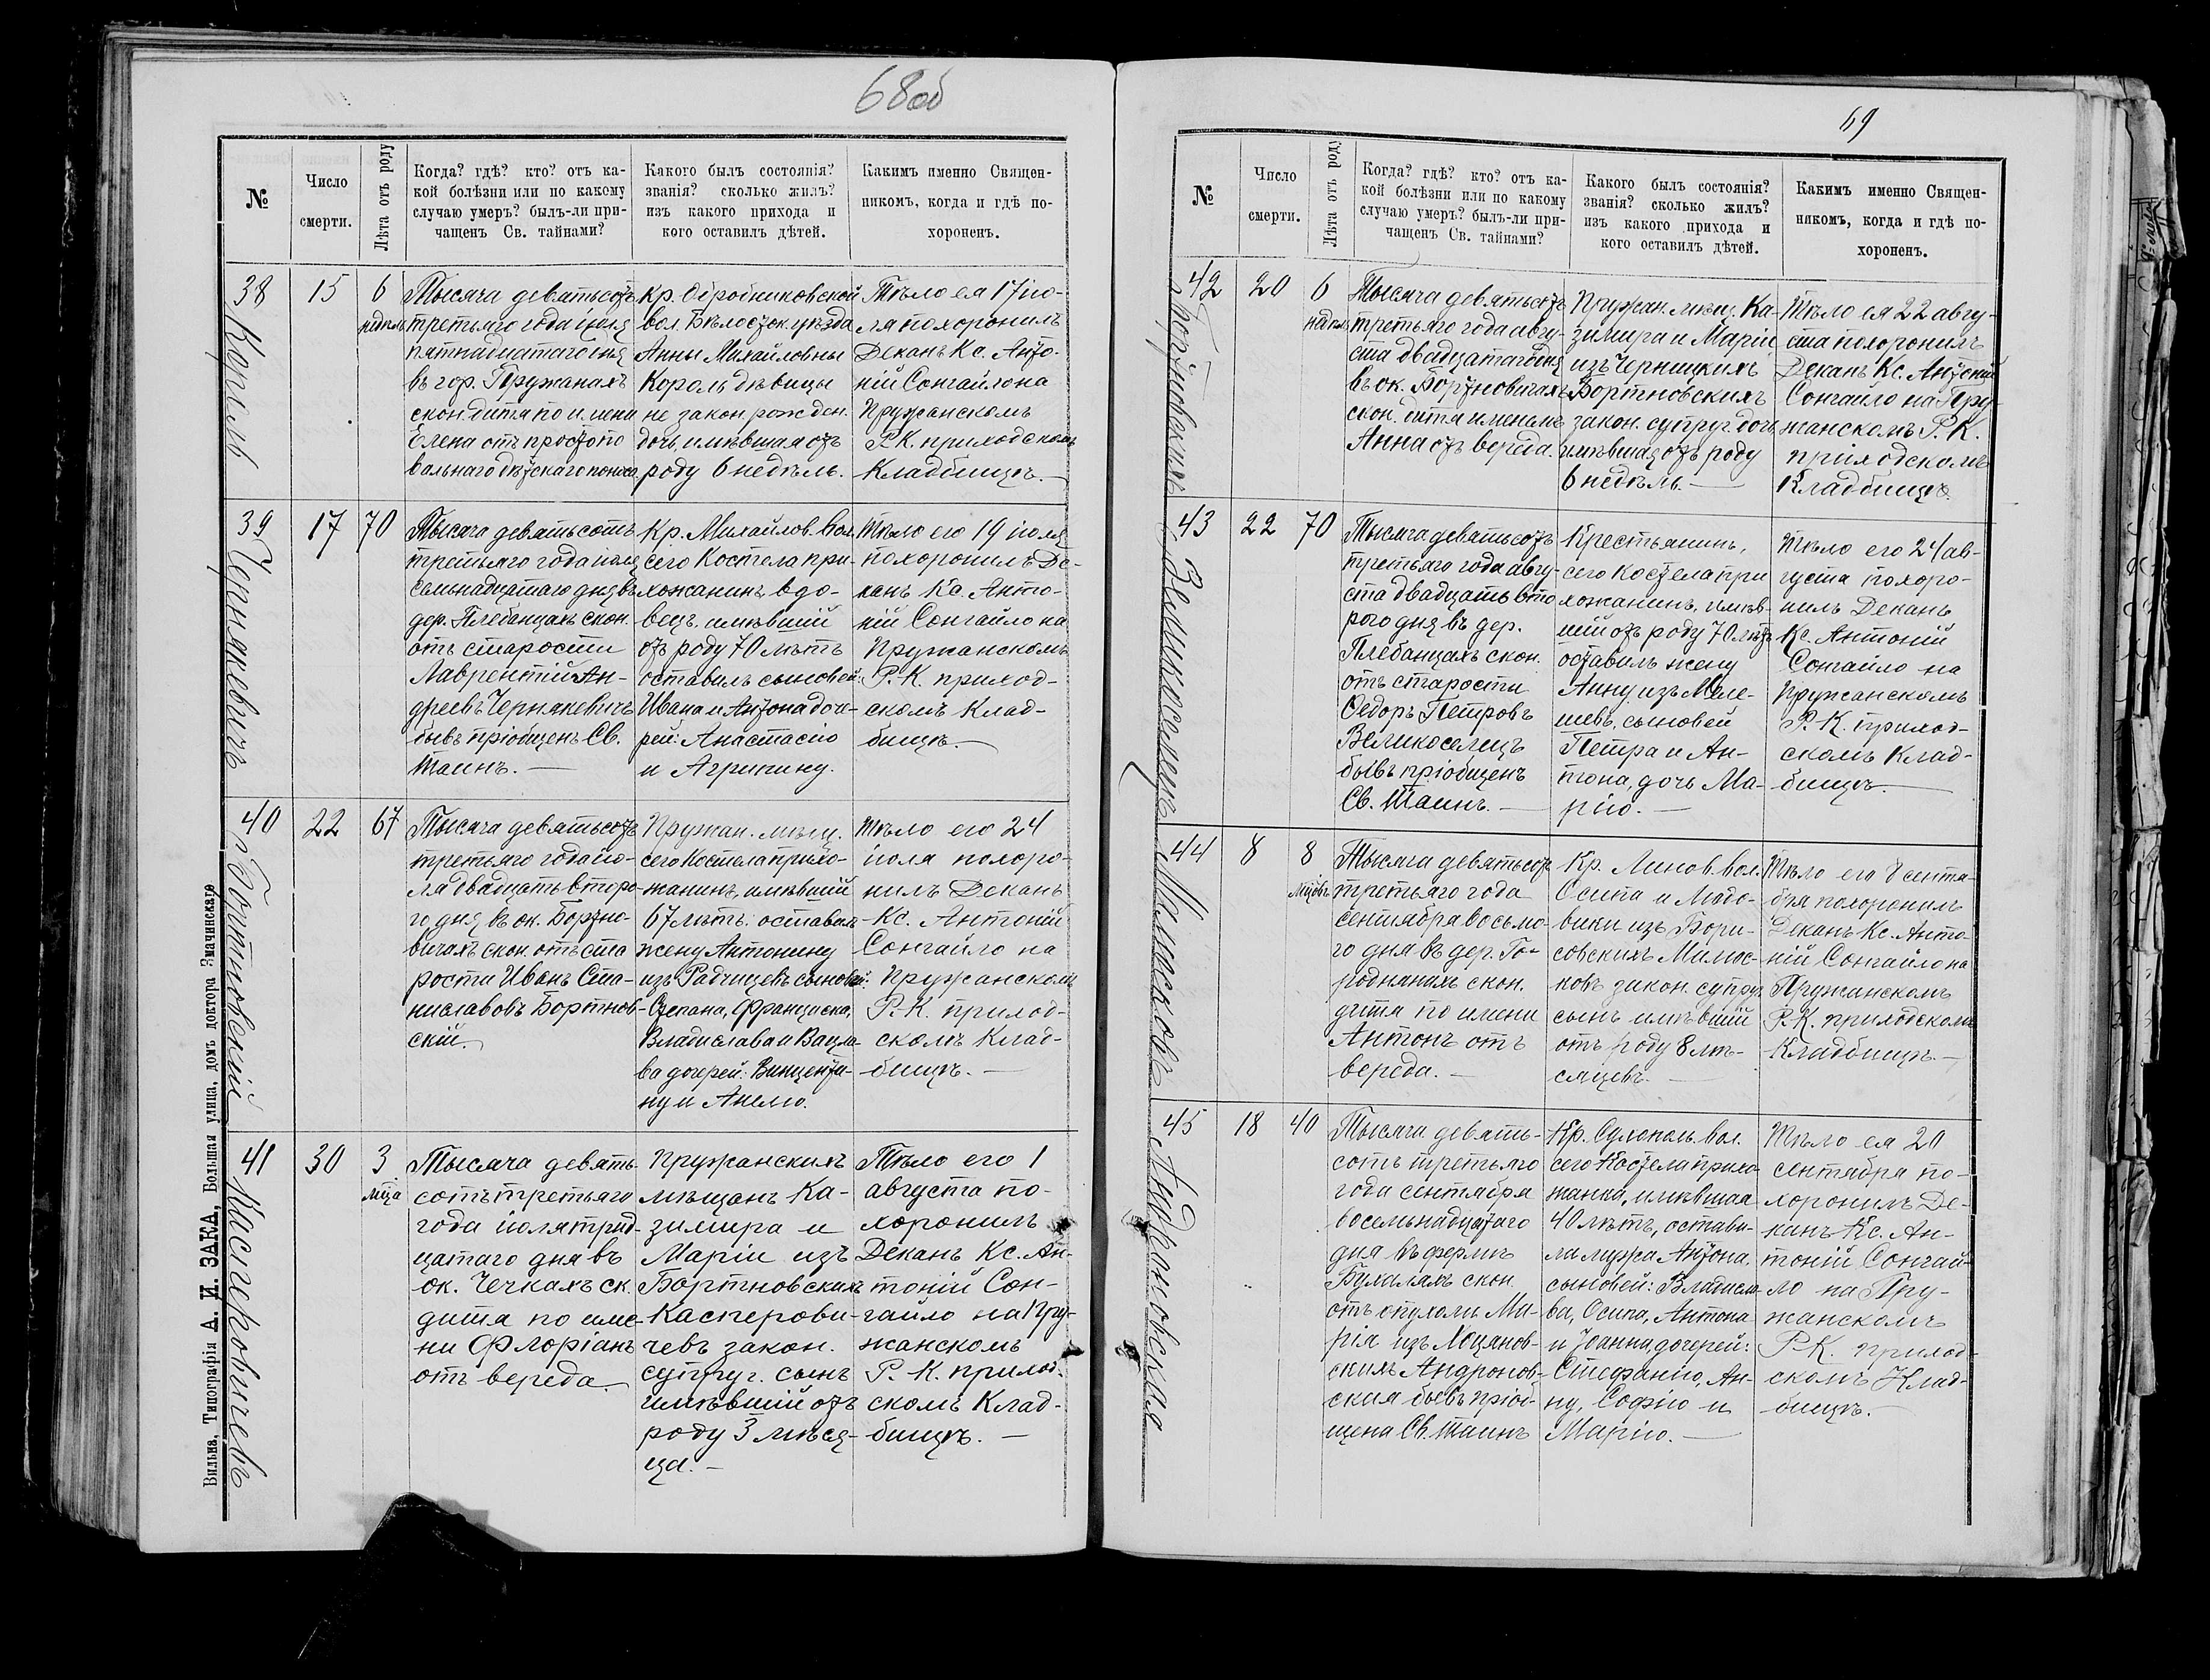 68об
№
Число
смерти.
Лѣта отъ роду
Когда? гдѣ? кто? отъ ка-
кой болѣзни или по какому
случаю умеръ? былъ-ли при-
чащенъ Св. тайнами?
Какого былъ состоянія?
званія? сколько жилъ?
изъ какого прихода и
кого оставилъ дѣтей.
Какимъ именно Священ-
никомъ, когда и гдѣ по-
хороненъ.
38
Король
15
6
недѣль
Тысяча девятьсотъ
третьяго года іюля
пятнадцатаго дня
въ гор. Пружанахъ
скон. дитя по имени
Елена отъ простото
вальнаго дѣтскаго поноса.
Кр. Обройниковской
вол. Бѣлосток. уѣзда
Анны Михайловны
Король дѣвицы
не закон. рожден.
дочь, имѣвшая отъ
роду 6 недѣль.
Тѣло ея 17 ію-
ля похоронилъ
Деканъ Кс. Анто-
ній Сонгайло на
Пружанскомъ
Р.К. приходскомъ
Кладбищѣ.
39
Чернякевичъ
17
70
Тысяча девятьсотъ
третьяго года іюля
семьнадцатаго дня въ
дер. Плебанцахъ скон.
отъ старости
Лаврентій Ан-
дреевъ Чернякевичъ
бывъ пріобщенъ Св.
Таинъ.
Кр. Михайлов. вол.
сего Костела при-
хожанинъ вдо-
вецъ, имѣвшій
отъ роду 70 лѣтъ
оставилъ сыновей:
Ивана и Антона доче-
рей: Анастасію
и Агрипину.
Тѣло его 19 іюля
похоронилъ Де-
канъ Кс. Анто-
ній Сонгайло на
Пружанскомъ
Р.-К. приход-
скомъ Клад-
бищѣ.
40
Бортновскій
22
67
Тысяча девятьсотъ
третьяго года ію-
ля двадцать второ-
го дня въ ок. Бортно-
вичахъ скон. отъ ста
рости Иванъ Ста-
ниславовъ Бортнов-
скій.
Пружан. мѣщ.
сего Костела прихо-
жанинъ, имѣвшій
67 лѣтъ: оставилъ
жену Антонину
изъ Радчицевъ сыновей:
Степана, Франциска,
Владислава и Вацла-
ва дочерей: Винценти-
ну и Анелю.
Тѣло его 24
іюля похоро-
нилъ Деканъ
Кс. Антоній
Сонгайло на
Пружанскомъ
Р.-К. приход-
скомъ Клад-
бищѣ.
41
Касперовичевъ
30
3
мца
Тысяча девять
сотъ третьяго
года іюля трид-
цатаго дня въ
ок. Чечкахъ ск.
дитя по име-
ни Флоріанъ
отъ вереда.
Пружанскихъ
мѣщанъ Ка-
зимира и
Маріи изъ
Бортновскихъ
Касперови-
чевъ закон.
супруг. сынъ
имѣвшій отъ
роду 3 мѣся-
ца.
Тѣло его 1
августа по-
хоронилъ
Деканъ Кс. Ан-
тоній Сон-
гайло на Пру-
жанскомъ
Р.-К. приход-
скомъ Клад-
бищѣ.
Вильна, Типографія А. И. ЗАКА, Большая улица, домъ доктора Змачинскаго
69
№
Число
смерти.
Лѣта отъ роду
Когда? гдѣ? кто? отъ ка-
кой болѣзни или по какому
случаю умеръ? былъ-ли при-
чащенъ Св. тайнами?
Какого былъ состоянія?
званія? сколько жилъ?
изъ какого прихода и
кого оставилъ дѣтей.
Какимъ именно Священ-
никомъ, когда и гдѣ по-
хороненъ.
42
Бортновскихъ
20
6
недѣль
Тысяча девятьсотъ
третьяго года авгу-
ста двадцатаго дня
въ ок. Бортновичахъ
скон. дитя именемъ
Анна отъ вереда.
Пружан. мѣщ. Ка-
зимира и Маріи
изъ Черницкихъ
Бортновскихъ
закон. супруг. дочь
имѣвшая отъ роду
6 недѣль.
Тѣло ея 22 авгу-
ста похоронилъ
Деканъ Кс. Антоній
Сонгайло на Пру-
жанскомъ Р. К.
приходскомъ
Кладбищѣ.
43
Великоселецъ
22
70
Тысяча девятьсотъ
третьяго года авгу-
ста двадцать вто
рого дня въ дер.
Плебанцахъ скон.
отъ старости
Ѳедоръ Петровъ
Великоселецъ
бывъ пріобщенъ
Св. Таинъ.
Крестьянинъ,
сего костела при
хожанинъ, имѣв-
шій отъ роду 70 лѣтъ
оставилъ жену
Анну изъ Меле-
шевъ, сыновей
Петра и Ан-
тона, дочь Ма-
рію.
Тѣло его 24 ав-
густа похоро-
нилъ Деканъ
Кс. Антоній
Сонгайло на
Пружанскомъ
Р. К. приход-
скомъ Клад-
бищѣ.
44
8
8
мцевъ
Тысяча девятьсотъ
третьяго года
сентября восьмо-
го дня въ дер. Го-
роднянахъ скон.
дитя по имени
Антонъ отъ
вереда.
Кр. Линов. вол.
Осипа и Мадо-
вики изъ Бори-
совскихъ Милос-
ковъ закон. супруг.
сынъ имѣвшій
отъ роду 8 мѣ-
сяцевъ.
Тѣло его 8 сентя-
бря похоронилъ
Деканъ Кс. Анто-
ній Сонгайло на
Пружанскомъ
Р.-К. приходскомъ
Кладбищѣ.
45
Андроновская
18
40
Тысяча девять-
сотъ третьяго
года сентября
восемьнадцатаго
дня въ фермѣ
Бухалахъ скон.
отъ опухоли Ма-
рія изъ Моцянов-
скихъ Андронов-
ская бывъ пріоб-
щена Св. Таинъ
Кр. Сухополь. вол.
сего Костела прихо
жанка, имѣвшая
40 лѣтъ, остави-
ла мужа Антона
сыновей: Владисла-
ва, Осипа, Антона
и Іоанна, дочерей:
Стефанію, Ан-
ну, Софію и
Марію.
Тѣло ея 20
сентября по-
хоронилъ Де-
канъ Кс. Ан-
тоній Сонгай-
ло на Пру-
жанскомъ
Р.К. приход-
скомъ Клад-
бищѣ.